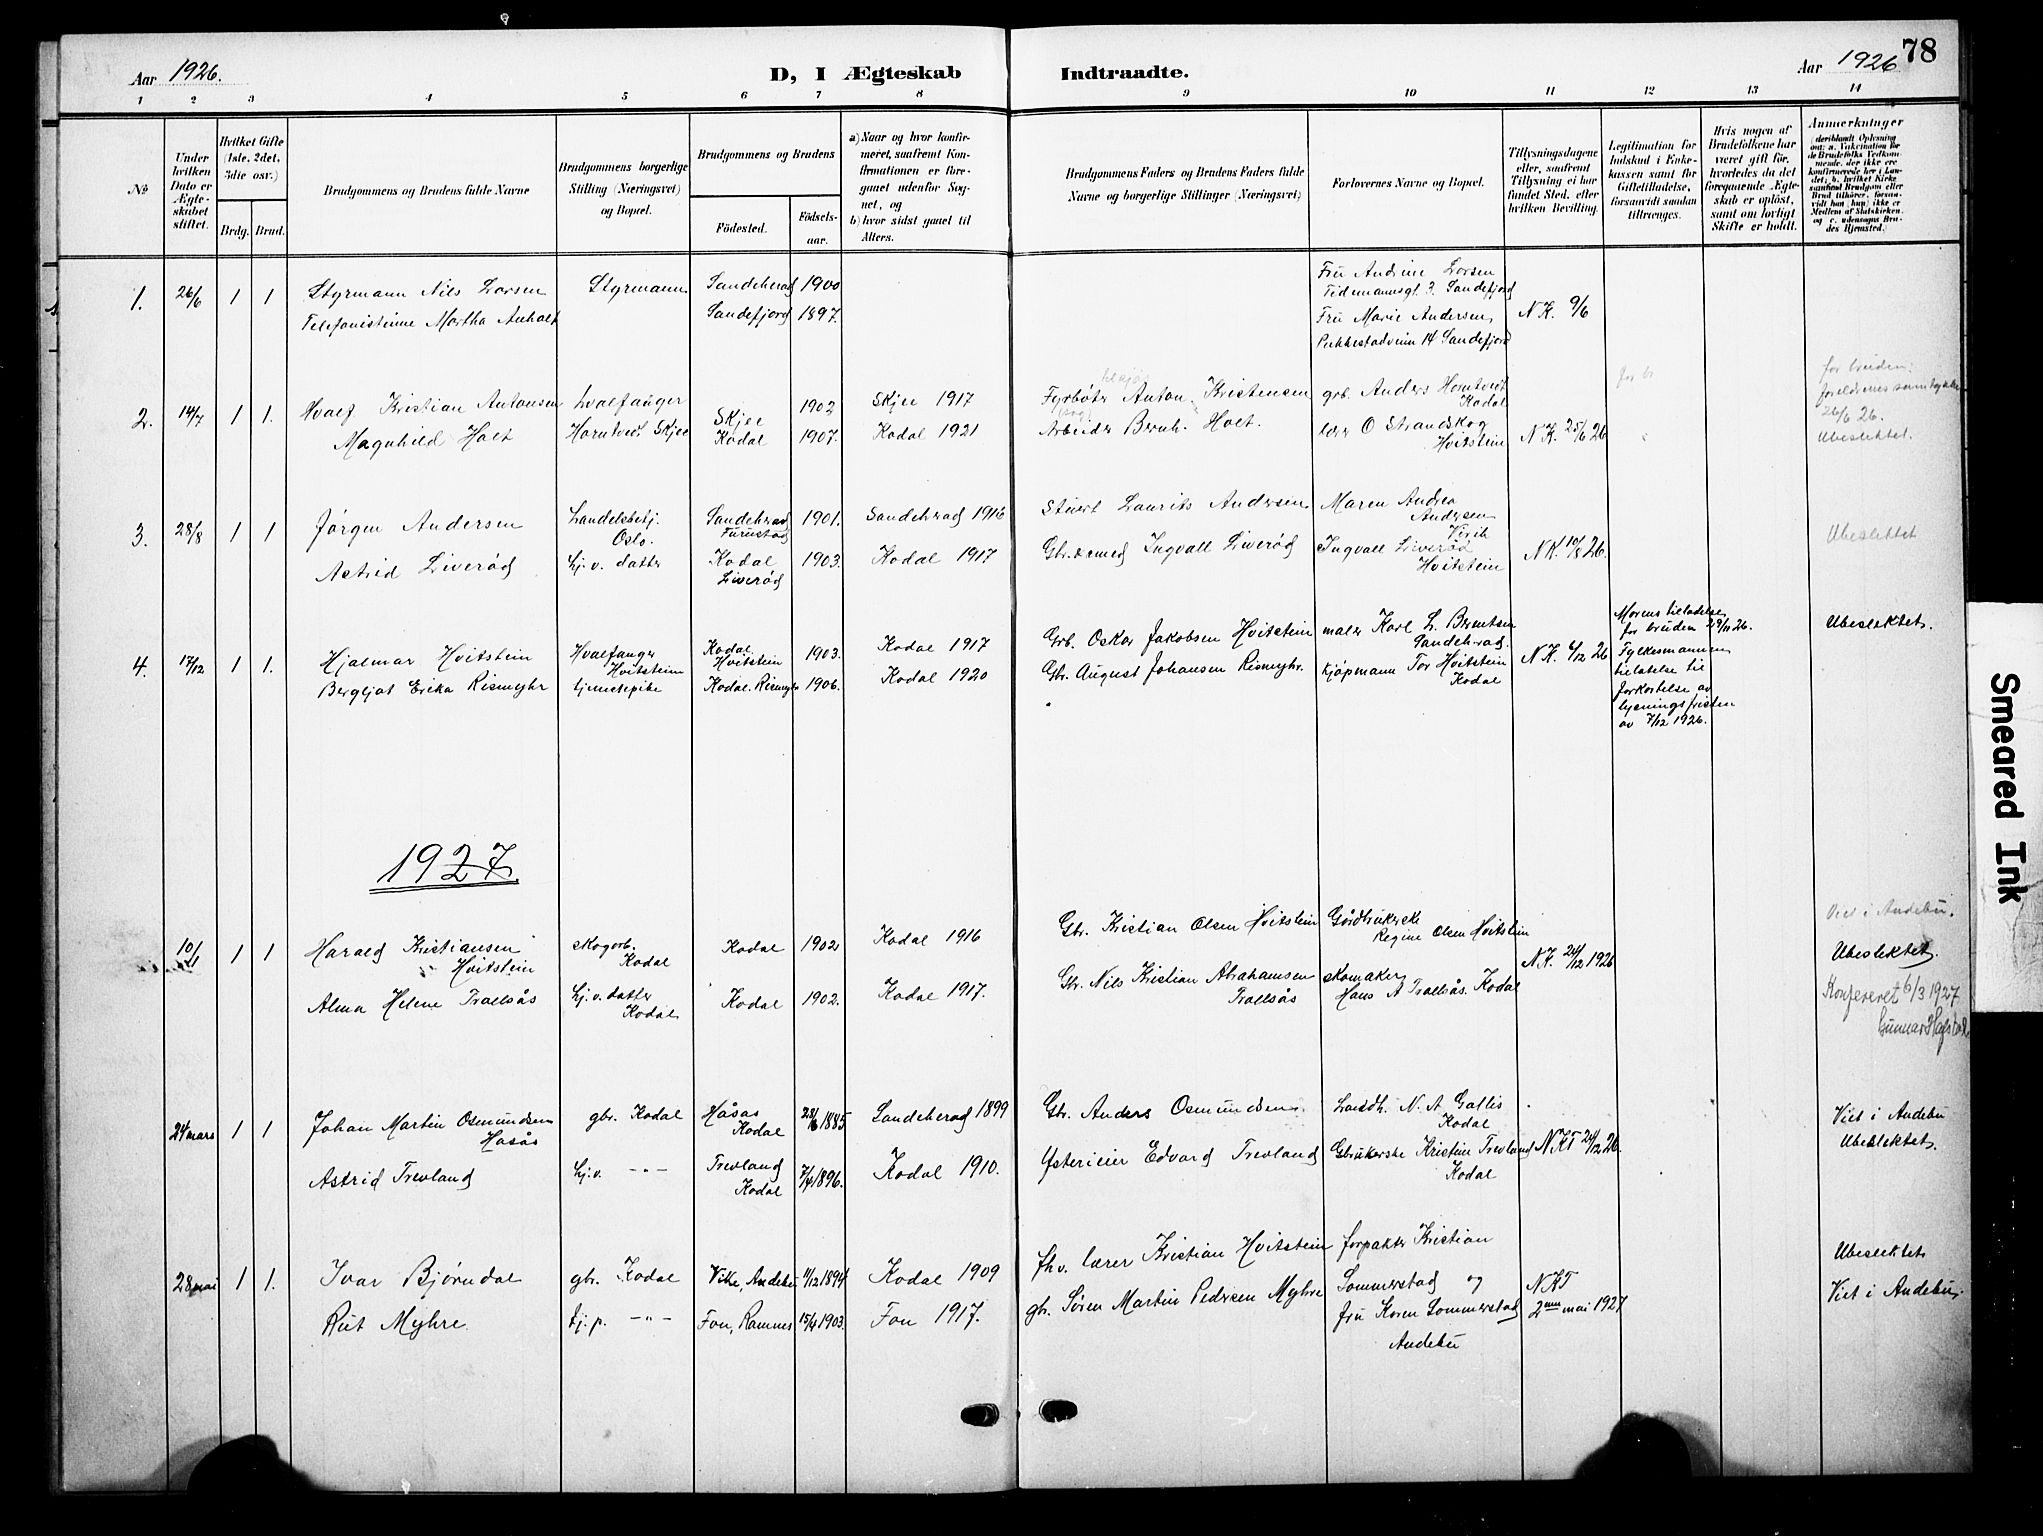 78
Aar 1926.
D, I Ægteskab Indtraadte.
Aar 1926
1 2 3 4 5 6 7 8 9 10 11 12 13 14
No
Under hvilken Dato er Ægteskabet stiftet.
Hvilket Gifte (1ste, 2det, 3die osv.)
Brdg. Brud.
Brudgommens og Brudens fulde Navne
Brudgommens borgerlige Stilling (Næringsvei) og Bopæl.
Brudgommens og Brudens
Fødested.
Fødselsaar.
a) Naar og hvor konfirmeret, saafremt Konfirmationen er foregaaet udenfor Sognet, og
b) hvor sidst gaaet til Alters.
Brudgommens Faders og Brudens Faders fulde Navne og borgerlige Stillinger (Næringsvei)
Forlovernes Navne og Bopæl.
Tillysningsdagene eller, saafremt Tillysning ei har fundet Sted, efter hvilken Bevilling.
Legitimation for Indskud i Enkekassen samt for Giftetilladelse, forsaavidt saadan tiltrænges.
Hvis nogen af Brudefolkene har været gift før, hvorledes da det foregaaende Ægteskab er opløst, samt om lovligt Skifte er holdt.
Anmerkninger
(deriblandt Oplysning om: a. Vakcination for de Brudefolks Vedkommende, der ikke ere konfirmerede her i Landet; b. hvilket Kirkesamfund Brudgom eller Brud tilhører, forsaavidt han (hun) ikke er Medlem af Statskirken, og c. udensogns Brudes Hjemsted.)
1. 26/6 1 1
Styrmann Nils Larsen
Styrmann
Sandeherad 1900
Telefonistinne Martha Anholt
Sandefjord 1897.
Fru Andrine Larsen
Tidemannsgt. 3. Sandefjord
Fru Marie Andersen,
14 Sandefjord
N.K. 9/6
2. 14/7 1 1.
Hvalf. Kristian Antonsen
Hvalfanger
Skjee 1902
Skjee 1917
Fyrbøter Anton Kristensen
grb. Anders Horntvedt
Kodal
Magnhild Holt
Horntvedt Skjee
Kodal 1907.
Kodal 1921
Arbeider Bernh. Holt.
lærer O Strandskog
Hvitstein
N.K. 25/6 26
for br
for bruden:
foreldrenes samtykke
26/6 26.
Ubeslektet.
3. 28/8 1 1
Jørgen Andersen
Handelsbetj.
Oslo.
Sandeherad
Furustad
1901.
Sandeherad 1916
Stuert Laurits Andersen
Maren Andrea
Andersen
Virik
Astrid Liverød
hj. v. datter
Kodal
Liverød
1903.
Kodal 1917
Gbr. smed Ingvall Liverød
Ingvall Liverød
Hvitstein
N.K. 10/8 26.
Ubeslektet
4. 17/12 1 1.
Hjalmar Hvitstein
Hvalfanger
Hvitstein
Kodal
Hvitstein
1903.
Kodal 1917
Grb. Oskar Jakobsen Hvitstein
maler Karl L. Berntsen
Sandeherad.
Bergljot Erika Rismyhr
tjenestepike
Kodal. Rismyhr 1906.
Kodal 1920
Gbr. August Johansen Rismyhr.
kjøpmann Tor Hvitstein
Kodal
N.K. 6/12 26
Morens tilladelse
for bruden 29/11 26.
Fylkesmannens
tilatelse til
forkortelse av
lysningsfristen
av 7/12 1926.
Ubeslektet.
1927.
10/21 1 1
Harald Kristiansen
Hvitstein
skogarb.
Kodal
Kodal 1902
Kodal 1916
Gbr. Kristian Olsen Hvitstein
Gårdbrukerske
Regine Olsen Hvitstein
Alma Helene Trollsås
hj. v. datter
Kodal
Kodal 1902.
Kodal 1917.
Gbr. Nils Kristian Abrahamsen
Trollsås
skomaker
Hans A Trollsås. Kodal
N.K. 24/12 1926
Viet i Andebu.
Ubeslektet.
Konfereret 6/3 1927.
24 mars 1 1
Johan Martin Osmundsen
Håsås
gbr. Kodal
Håsås
Kodal
1885
Sandeherad 1899
Gbr. Anders Osmundsen.
Landh. N. A Gallis
Kodal
Astrid Trevland
hj. v. -"-
Trevland
Kodal
1896.
Kodal 1910.
Ysterieier Edvard Trevland
Gbrukerske Kristine Trevland
Kodal
NKT 24/12 26.
Viet i Andebu
Ubeslektet.
28 mai 1 1.
Ivar Bjørndal
gbr. Kodal
Vike, Andebu 11/12 1894
Kodal 1909
fhv. lærer Kristian Hvitstein
forpakter Kristian
Sommerstad og
Rut Myhre.
hj. p. -"-
Fon, Ramnes 15/4 1903.
Fon 1917.
gbr. Søren Martin Pedersen Myhre
fru Karen Sommerstad
Andebu
NKT
2nn mai 1927
Ubeslektet
Viet i Andebu.
Smeared Ink